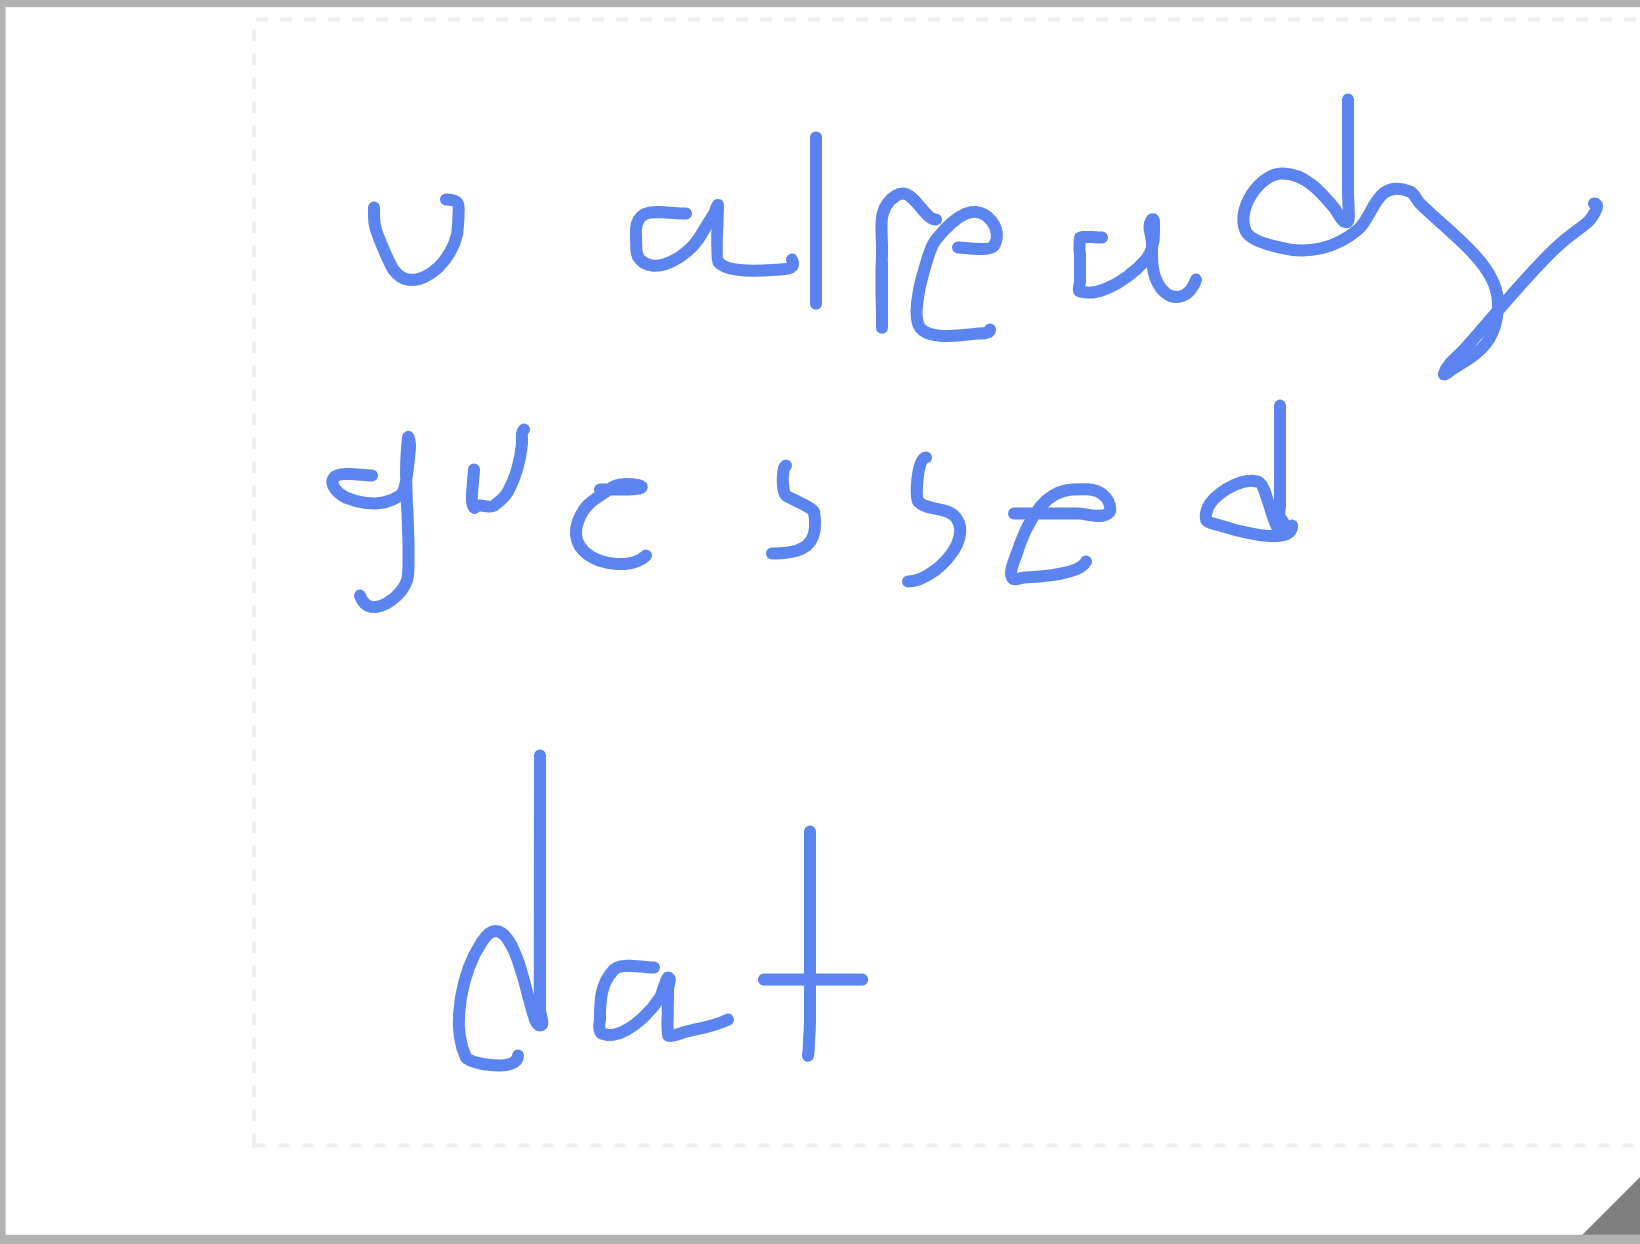 u already
guessed
dat